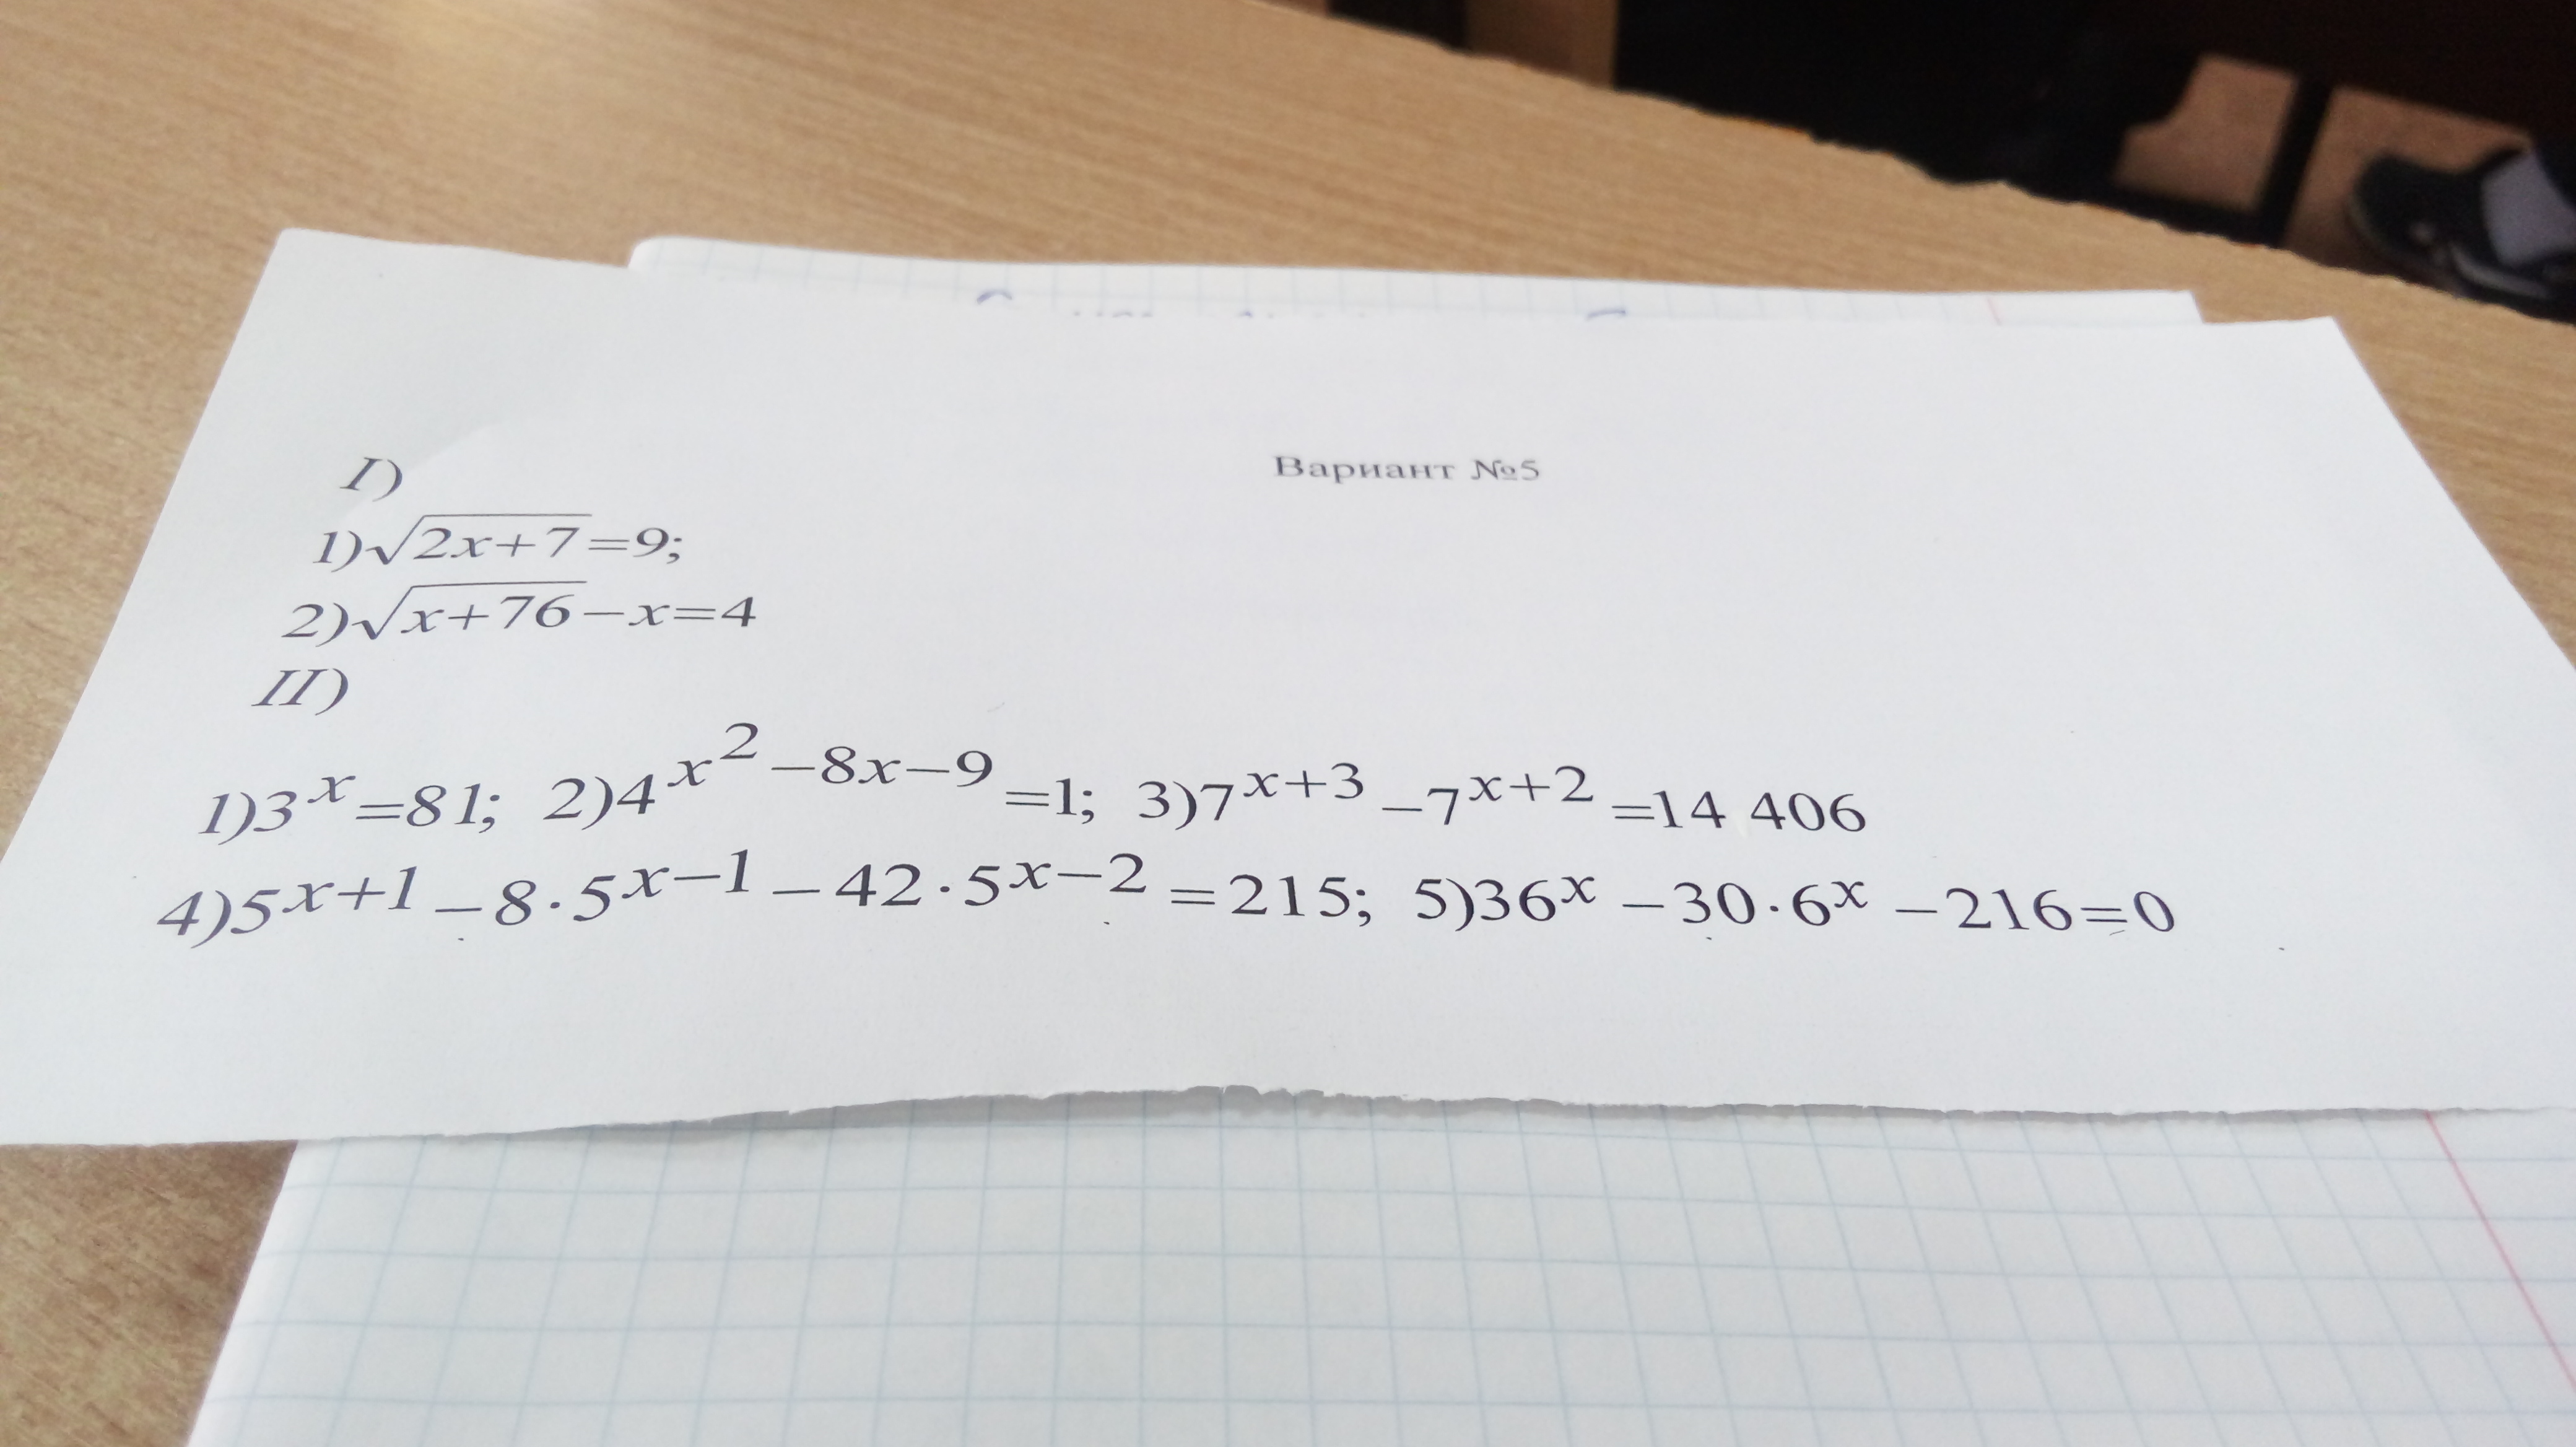 I)
Вариант №5
1)√2x+7=9;
2)√x+76−x=4
II)
1)3^x=81; 2)4^x^2−8x−9=1; 3)7^x+3−7^x+2=14 406
4)5^x+1−8·5^x−1−42·5^x−2=215; 5)36^x−30·6^x−216=0